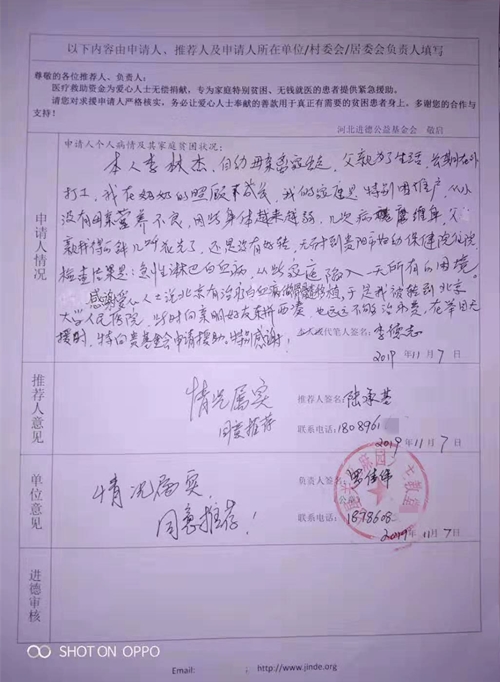 以下内容由申请人、推荐人及申请人所在单位/村委会/居委会负责人填写
尊敬的各位推荐人、负责人：
医疗救助资金为爱心人士无偿捐献，专为家庭特别贫困、无钱就医的患者提供紧急援助。
请您对求援申请人严格核实，务必让爱心人士奉献的善款用于真正有需要的贫困患者身上，多谢您的合作与
支持！
河北进德公益基金会 敬启
申请人情况
申请人个人病情及其家庭贫困状况：
本人李林杰，自幼母亲离家出走，父亲为了生活，长期在外
打工，我在奶奶的照顾下成长，我的家庭是特别困难户，从小
没有母亲营养不良，因此身体越来越弱，几次病
亲挣得的钱几乎花光了，还是没有好转，无奈到贵阳市妇幼保健院住院，
检查结果是：急性淋巴白血病，从此家庭陷入一无所有的困境。
感谢爱心人士说北京有治疗白血病，于是我被转到北京
大学人民医院，此时向亲朋好友东拼西凑，也远远不够治疗费，在举目无
援时，特向贵基金会申请援助。特别感谢！
代笔人签名：李德志
2019年11月7日
推荐人意见
情况属实
同意推荐
推荐人签名：陆承基
联系电话：1808961
2019年11月7日
单位意见
情况属实，
同意推荐！
负责人签名：罗伟
（公章）
联系电话：1878608
2019年11月7日
进德审核
SHOT ON OPPO
Email: ; http://www.jinde.org